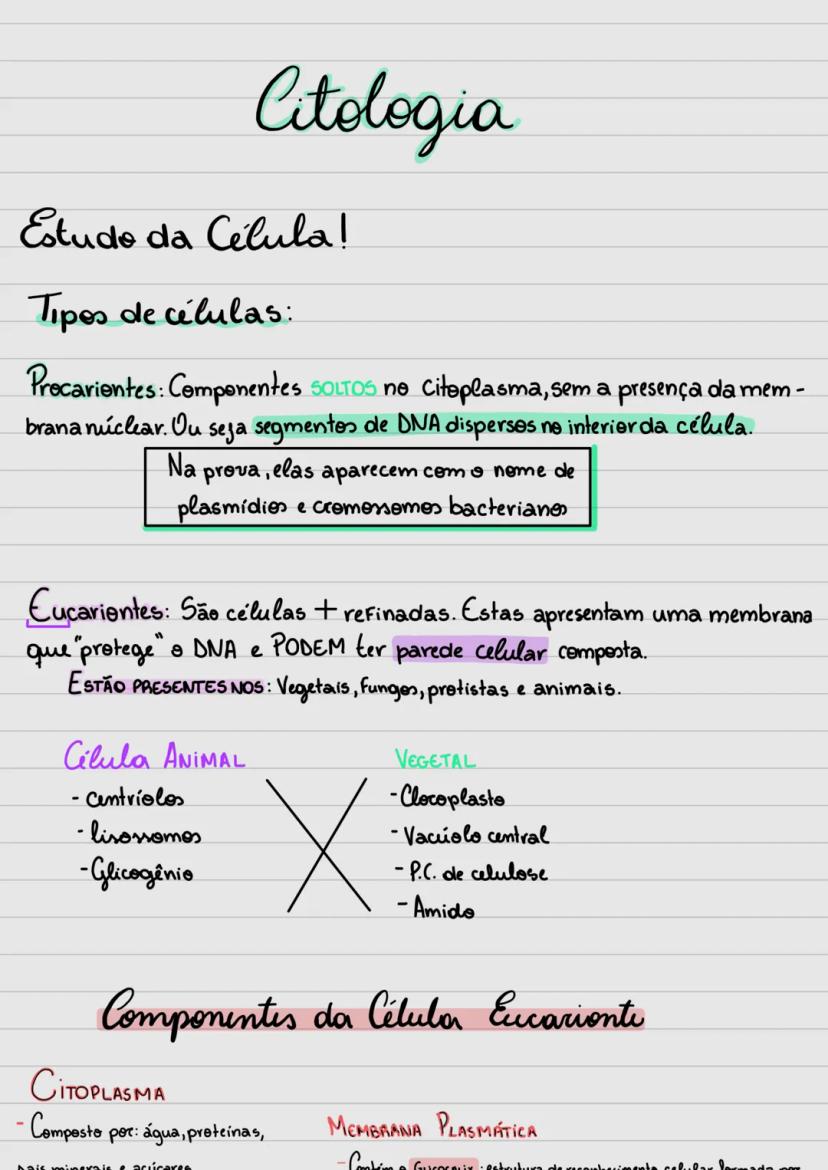 Citologia
Estudo da Célula!
Tipos de células:
Procariontes: Componentes SOLTOS no citoplasma, sem a presença da mem-
brana núclear. Ou seja segmentos de DNA dispersos no interior da célula.
Na prova, elas aparecem com o nome de
plasmídios e cromossomos bacterianos
Eucariontes: São células + refinadas. Estas apresentam uma membrana
que "protege" o DNA e PODEM ter parede celular composta.
ESTÃO PRESENTES NOS: Vegetais, fungos, protistas e animais.
Célula ANIMAL
- centríolos
- lisossomos
- Glicogênio
VEGETAL
- Clocoplasto
- Vacúolo central
- P.C. de celulose
- Amido
Componentes da Célula Eucarionte
CITOPLASMA
- Composto por: água, proteínas,
sais minerais e açúcares
MEMBRANA PLASMÁTICA
- Contém o : estrutura de reconhecimento celular formada por